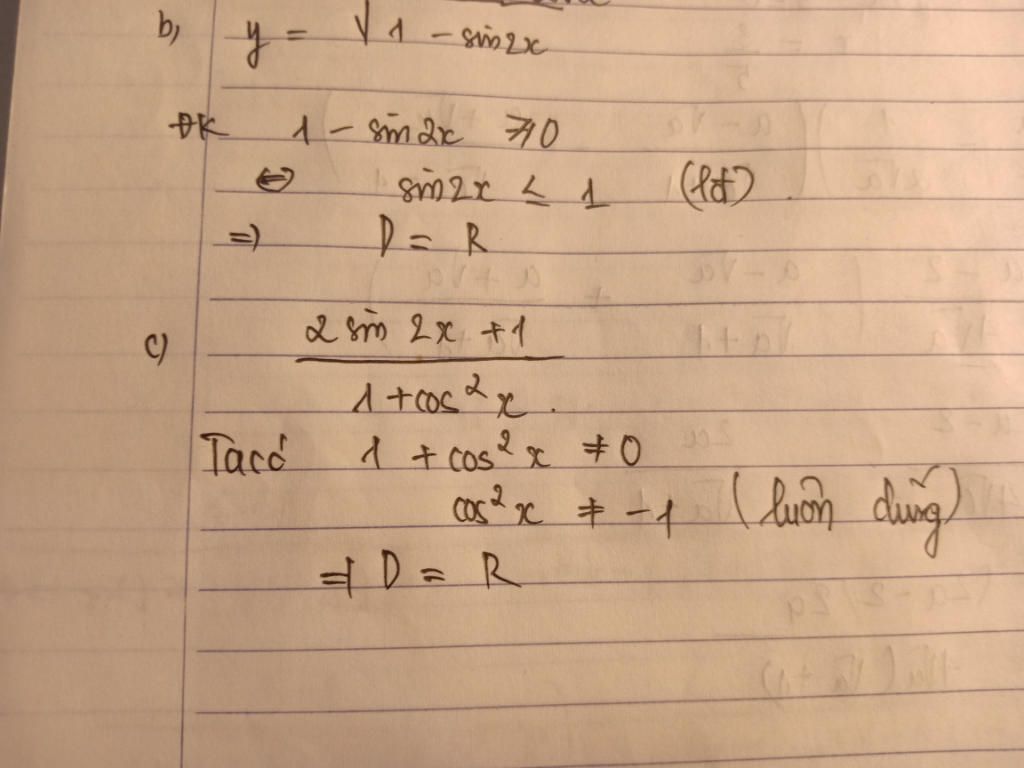 b, y = √ 1 - sin2x
ĐK 1 - sin 2x ≥ 0
⇔ sin2x ≤ 1
=) D = R
c) 2 sin 2x + 1
1 + cos² x .
Ta có 1 + cos² x ≠ 0
cos² x ≠ -1 ( luôn đúng)
=) D = R